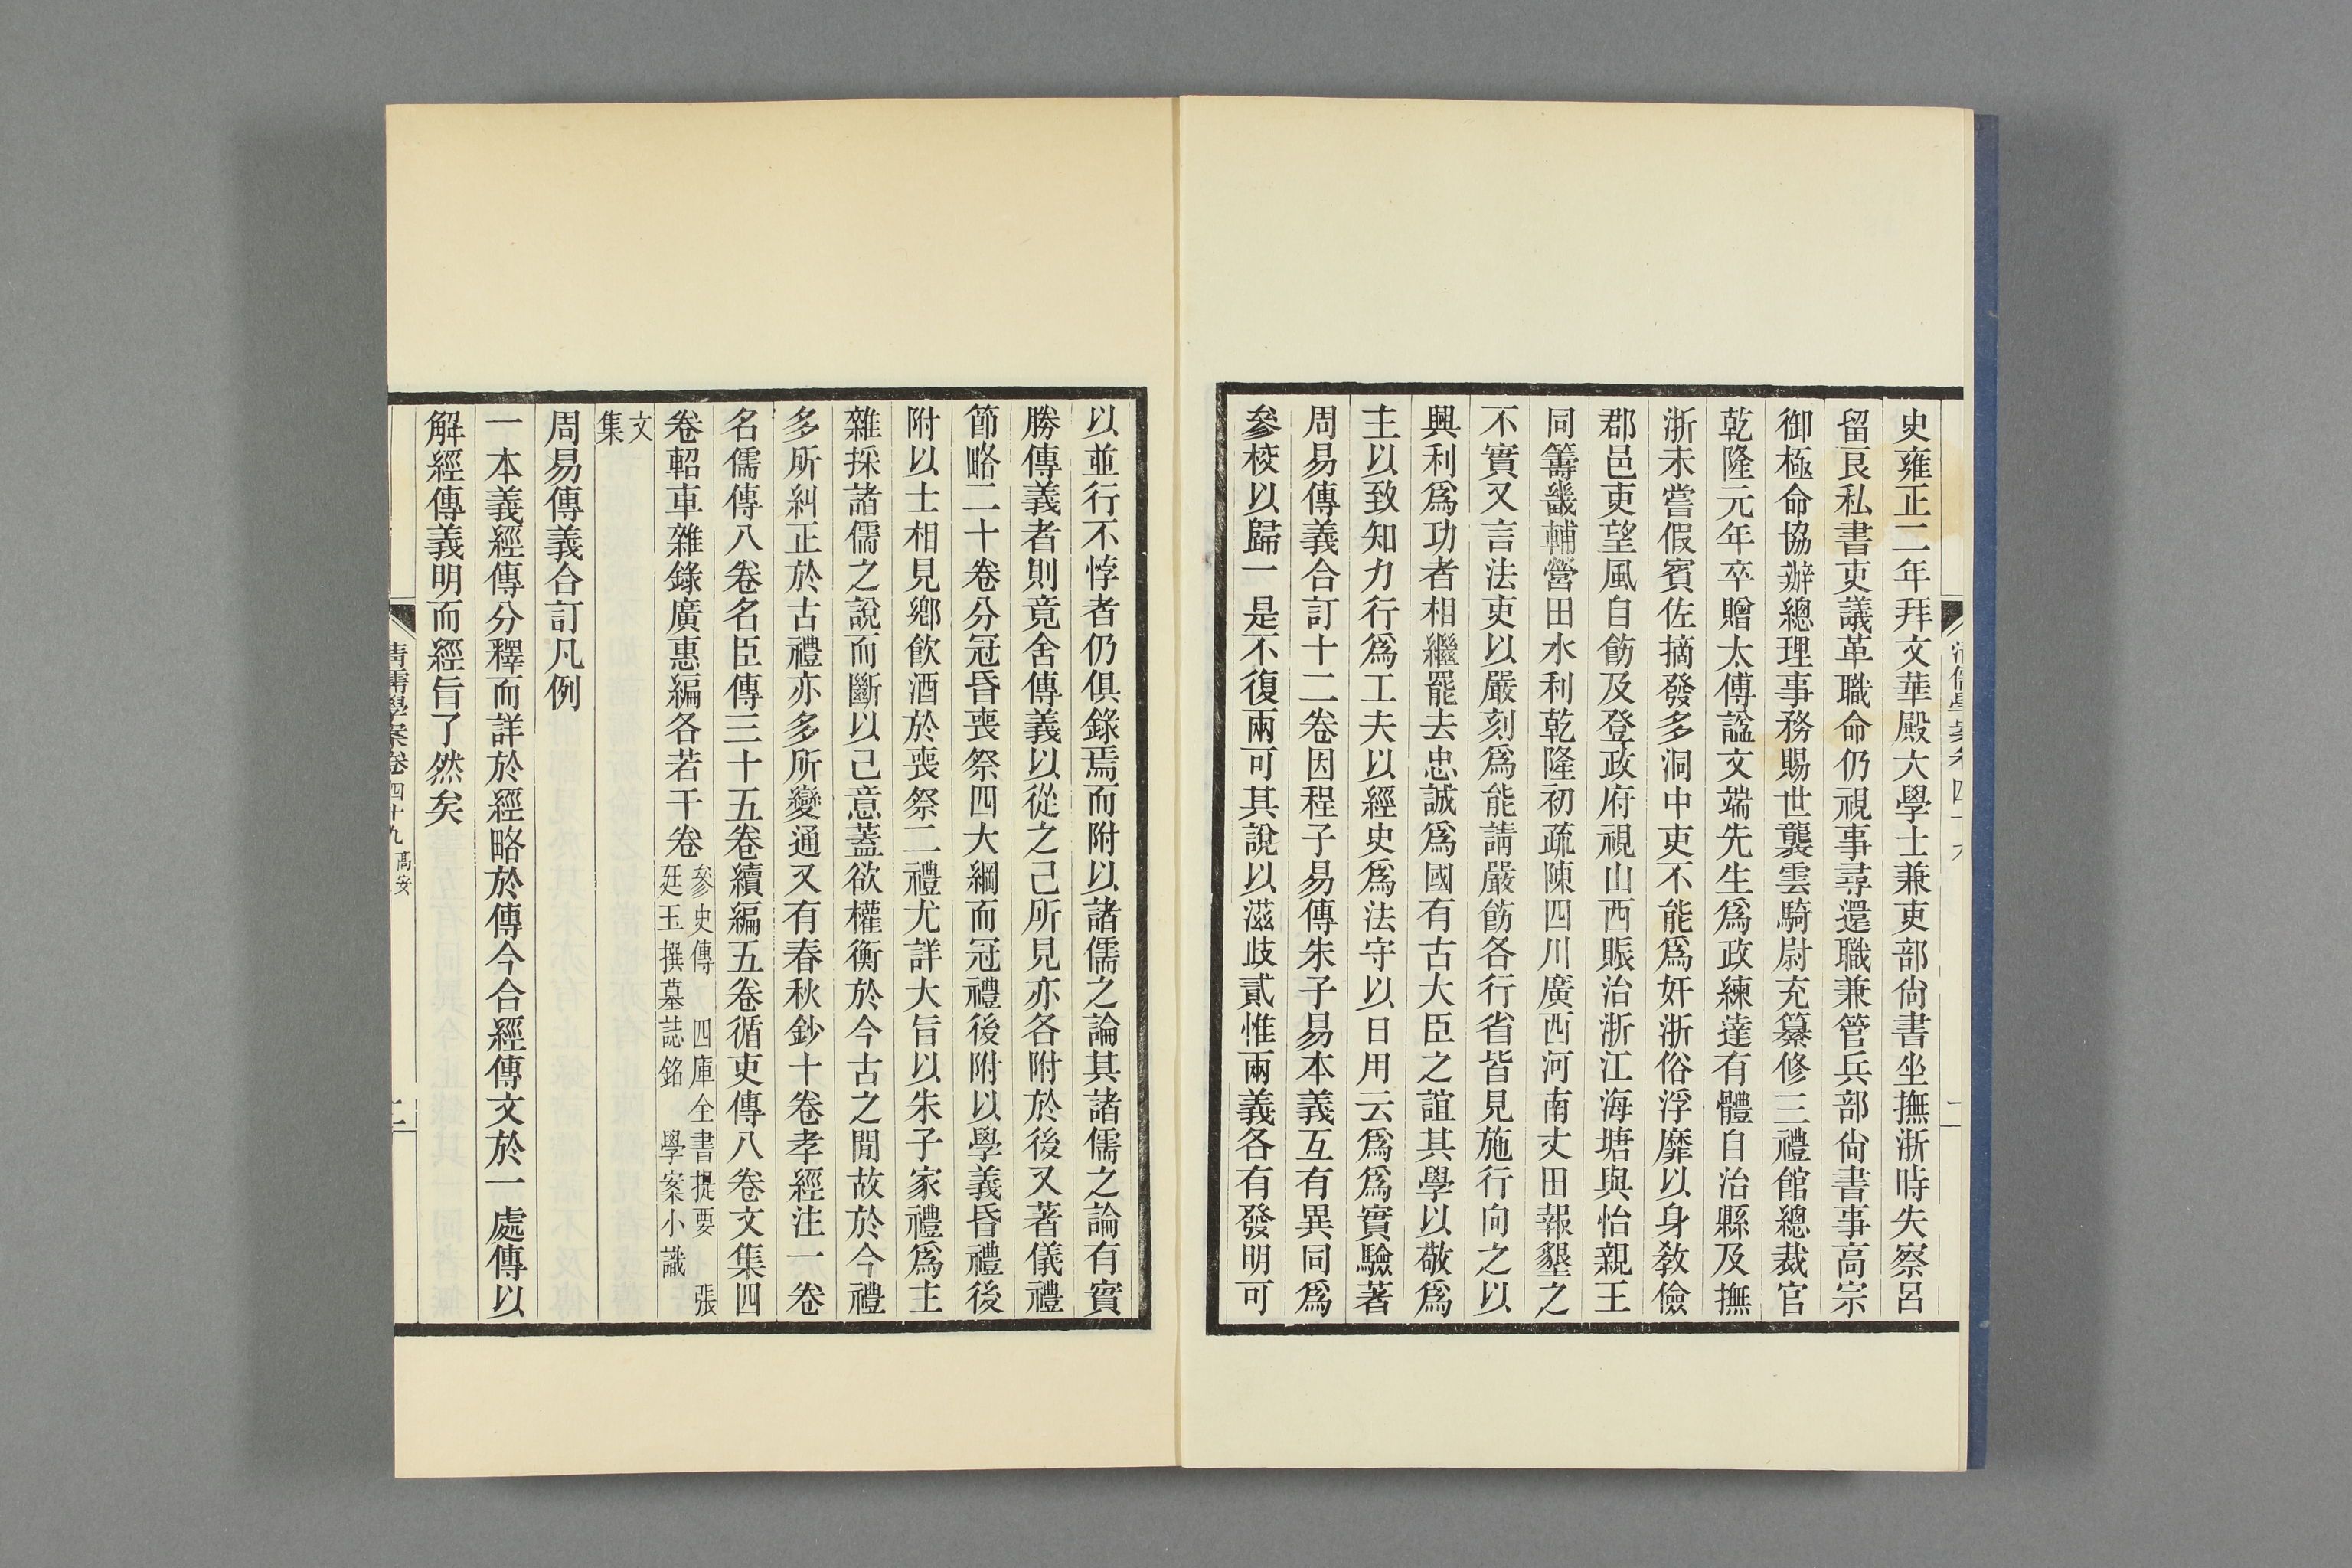 史雍正二年拜文華殿大學士兼吏部尙書坐撫浙時失察呂
留良私書吏議革職命仍視事尋還職兼管兵部尙書事高宗
御極命協辦總理事務賜世襲雲騎尉充纂修三禮館總裁官
乾隆元年卒贈太傅諡文端先生爲政練達有體自治縣及撫
浙未嘗假賓佐摘發多洞中吏不能爲奸浙俗浮靡以身敎儉
郡邑吏望風自飭及登政府視山西賑治浙江海塘與怡親王
同籌畿輔營田水利乾隆初疏陳四川廣西河南丈田報墾之
不實又言法吏以嚴刻爲能請嚴飭各行省皆見施行向之以
興利爲功者相繼罷去忠誠爲國有古大臣之誼其學以敬爲
主以致知力行爲工夫以經史爲法守以日用云爲爲實驗著
周易傳義合訂十二卷因程子易傳朱子易本義互有異同爲
參校以歸一是不復兩可其說以滋歧貳惟兩義各有發明可
以並行不悖者仍俱錄焉而附以諸儒之論其諸儒之論有實
勝傳義者則竟舍傳義以從之己所見亦各附於後又著儀禮
節略二十卷分冠昏喪祭四大綱而冠禮後附以學義昏禮後
附以士相見鄉飮酒於喪祭二禮尤詳大旨以朱子家禮爲主
雜採諸儒之說而斷以己意蓋欲權衡於今古之閒故於今禮
多所糾正於古禮亦多所變通又有春秋鈔十卷孝經注一卷
名儒傳八卷名臣傳三十五卷續編五卷循吏傳八卷文集四
卷軺車雜錄廣惠編各若干卷
參史傳 四庫全書提要 張
廷玉撰墓誌銘 學案小識
文
集
周易傳義合訂凡例
一本義經傳分釋而詳於經略於傳今合經傳文於一處傳以
解經傳義明而經旨了然矣
清儒學案卷四十九 高安 二